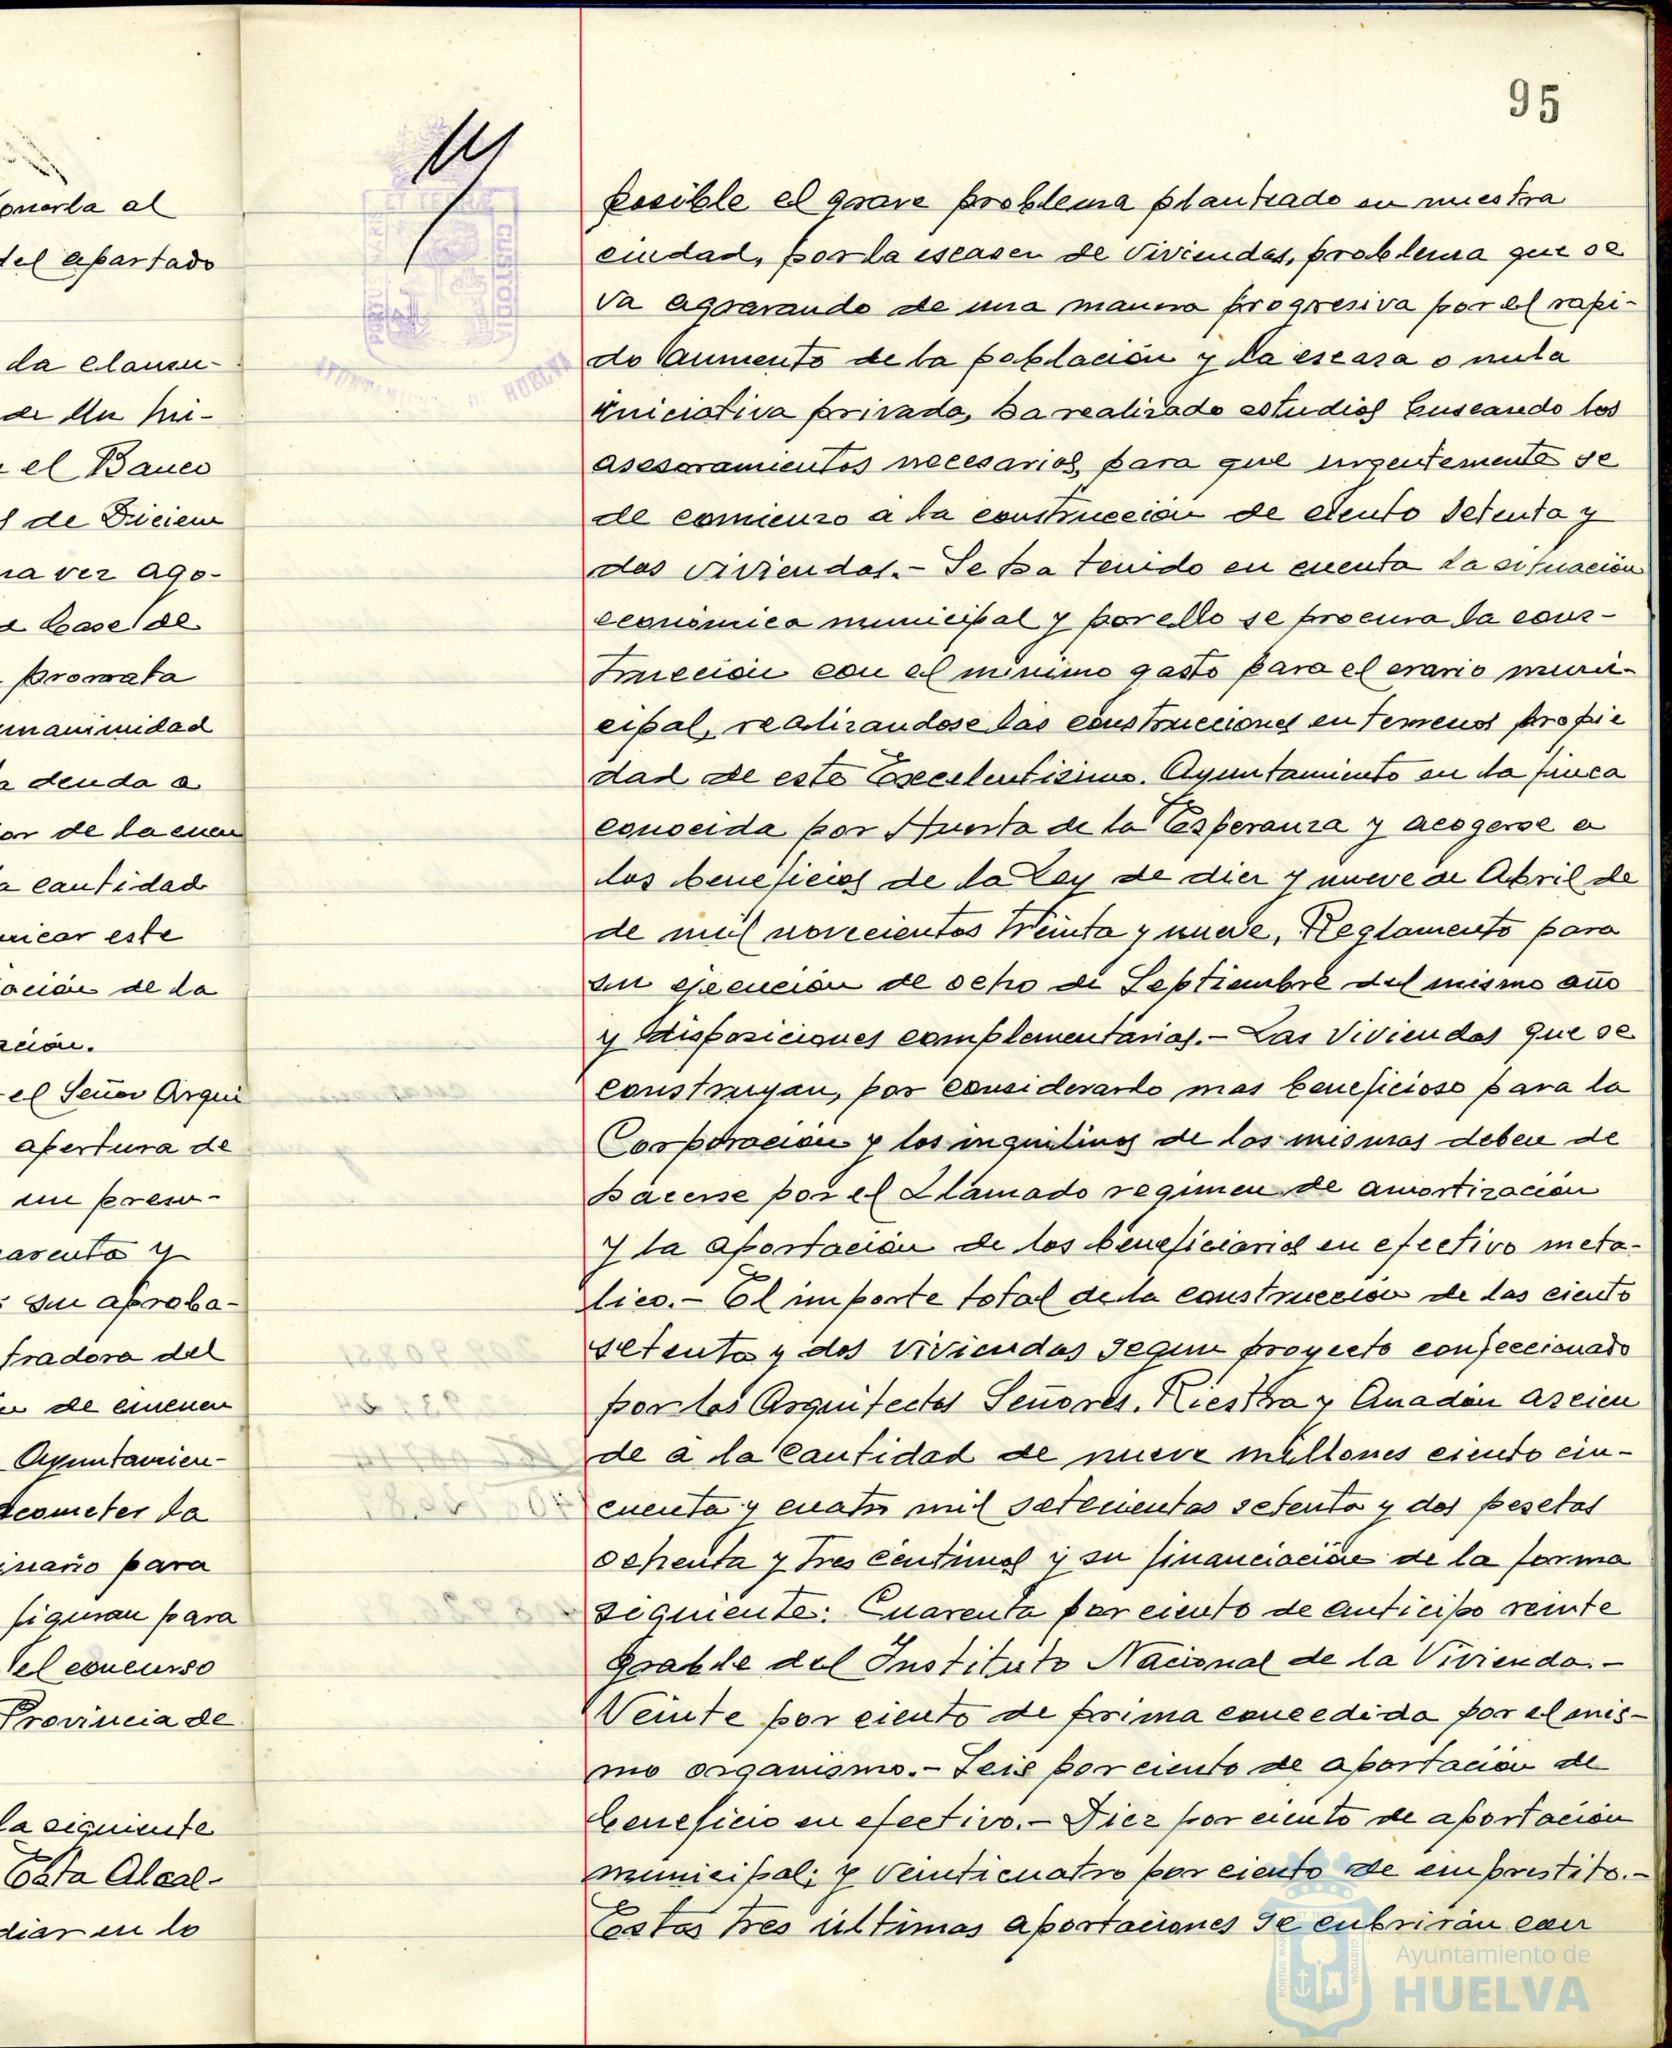 95
onerla al
del apartado
da clausu-
el Banco
de Diciem
na vez ago-
base de
prorrata
unanimidad
deuda a
or de la cuen
a cantidad
nicar este
ación de la
ción.
el Señor Arqui
apertura de
un presu-
arenta y
su aproba-
tradora del
de cincuen
Ayuntamien-
acometer la
inario para
figuran para
el concurso
Provincia de
la siguiente
Esta Alcal-
diar en lo
posible el grave problema planteado en nuestra
ciudad, por la escasez de viviendas, problema que se
va agravando de una manera progresiva por el rapi-
do aumento de la población y la escasa o nula
iniciativa privada, ha realizado estudios buscando los
asesoramientos necesarios para que urgentemente se
de comienzo a la construcción de ciento setenta y
dos viviendas.- Se ha tenido en cuenta la situación
económica municipal y por ello se procura la cons-
trucción con el minimo gasto para el erario muni-
cipal, realizandose las construcciones en terrenos propie
dad de este Excelentisimo. Ayuntamiento en la finca
conocida por Huerta de la Esperanza y acogerse a
los beneficios de la Ley de diez y nueve de Abril de
de mil novecientos treinta y nueve, Reglamento para
su ejecución de ocho de Septiembre del mismo año
y disposiciones complementarias.- Las viviendas que se
construyan, por considerarlo mas beneficioso para la
Corporación y los inquilinos de las mismas deben de
hacerse por el llamado regimen de amortización
y la aportación de los beneficiarios en efectivo meta-
lico.- El importe total de la construcción de las ciento
setenta y dos viviendas segun proyecto confeccionado
por los Arquitectos Señores. Riestra y Anadón ascien
de a la cantidad de nueve millones ciento cin-
cuenta y cuatro mil setecientas setenta y dos pesetas
ochenta y tres centimos y su financiación de la forma
siguiente: Cuarenta por ciento de anticipo reinte
grable del Instituto Nacional de la Vivienda.-
Veinte por ciento de prima concedida por el mis-
mo organismo.- Seis por ciento de aportación de
beneficio en efectivo.- Diez por ciento de aportación
municipal; y veinticuatro por ciento de emprestito.-
Estas tres últimas aportaciones se cubrirán con
PORTUS MARIS
ET TERRAE
CUSTODIA
AYUNTAMIENTO DE HUELVA
Ayuntamiento de
HUELVA